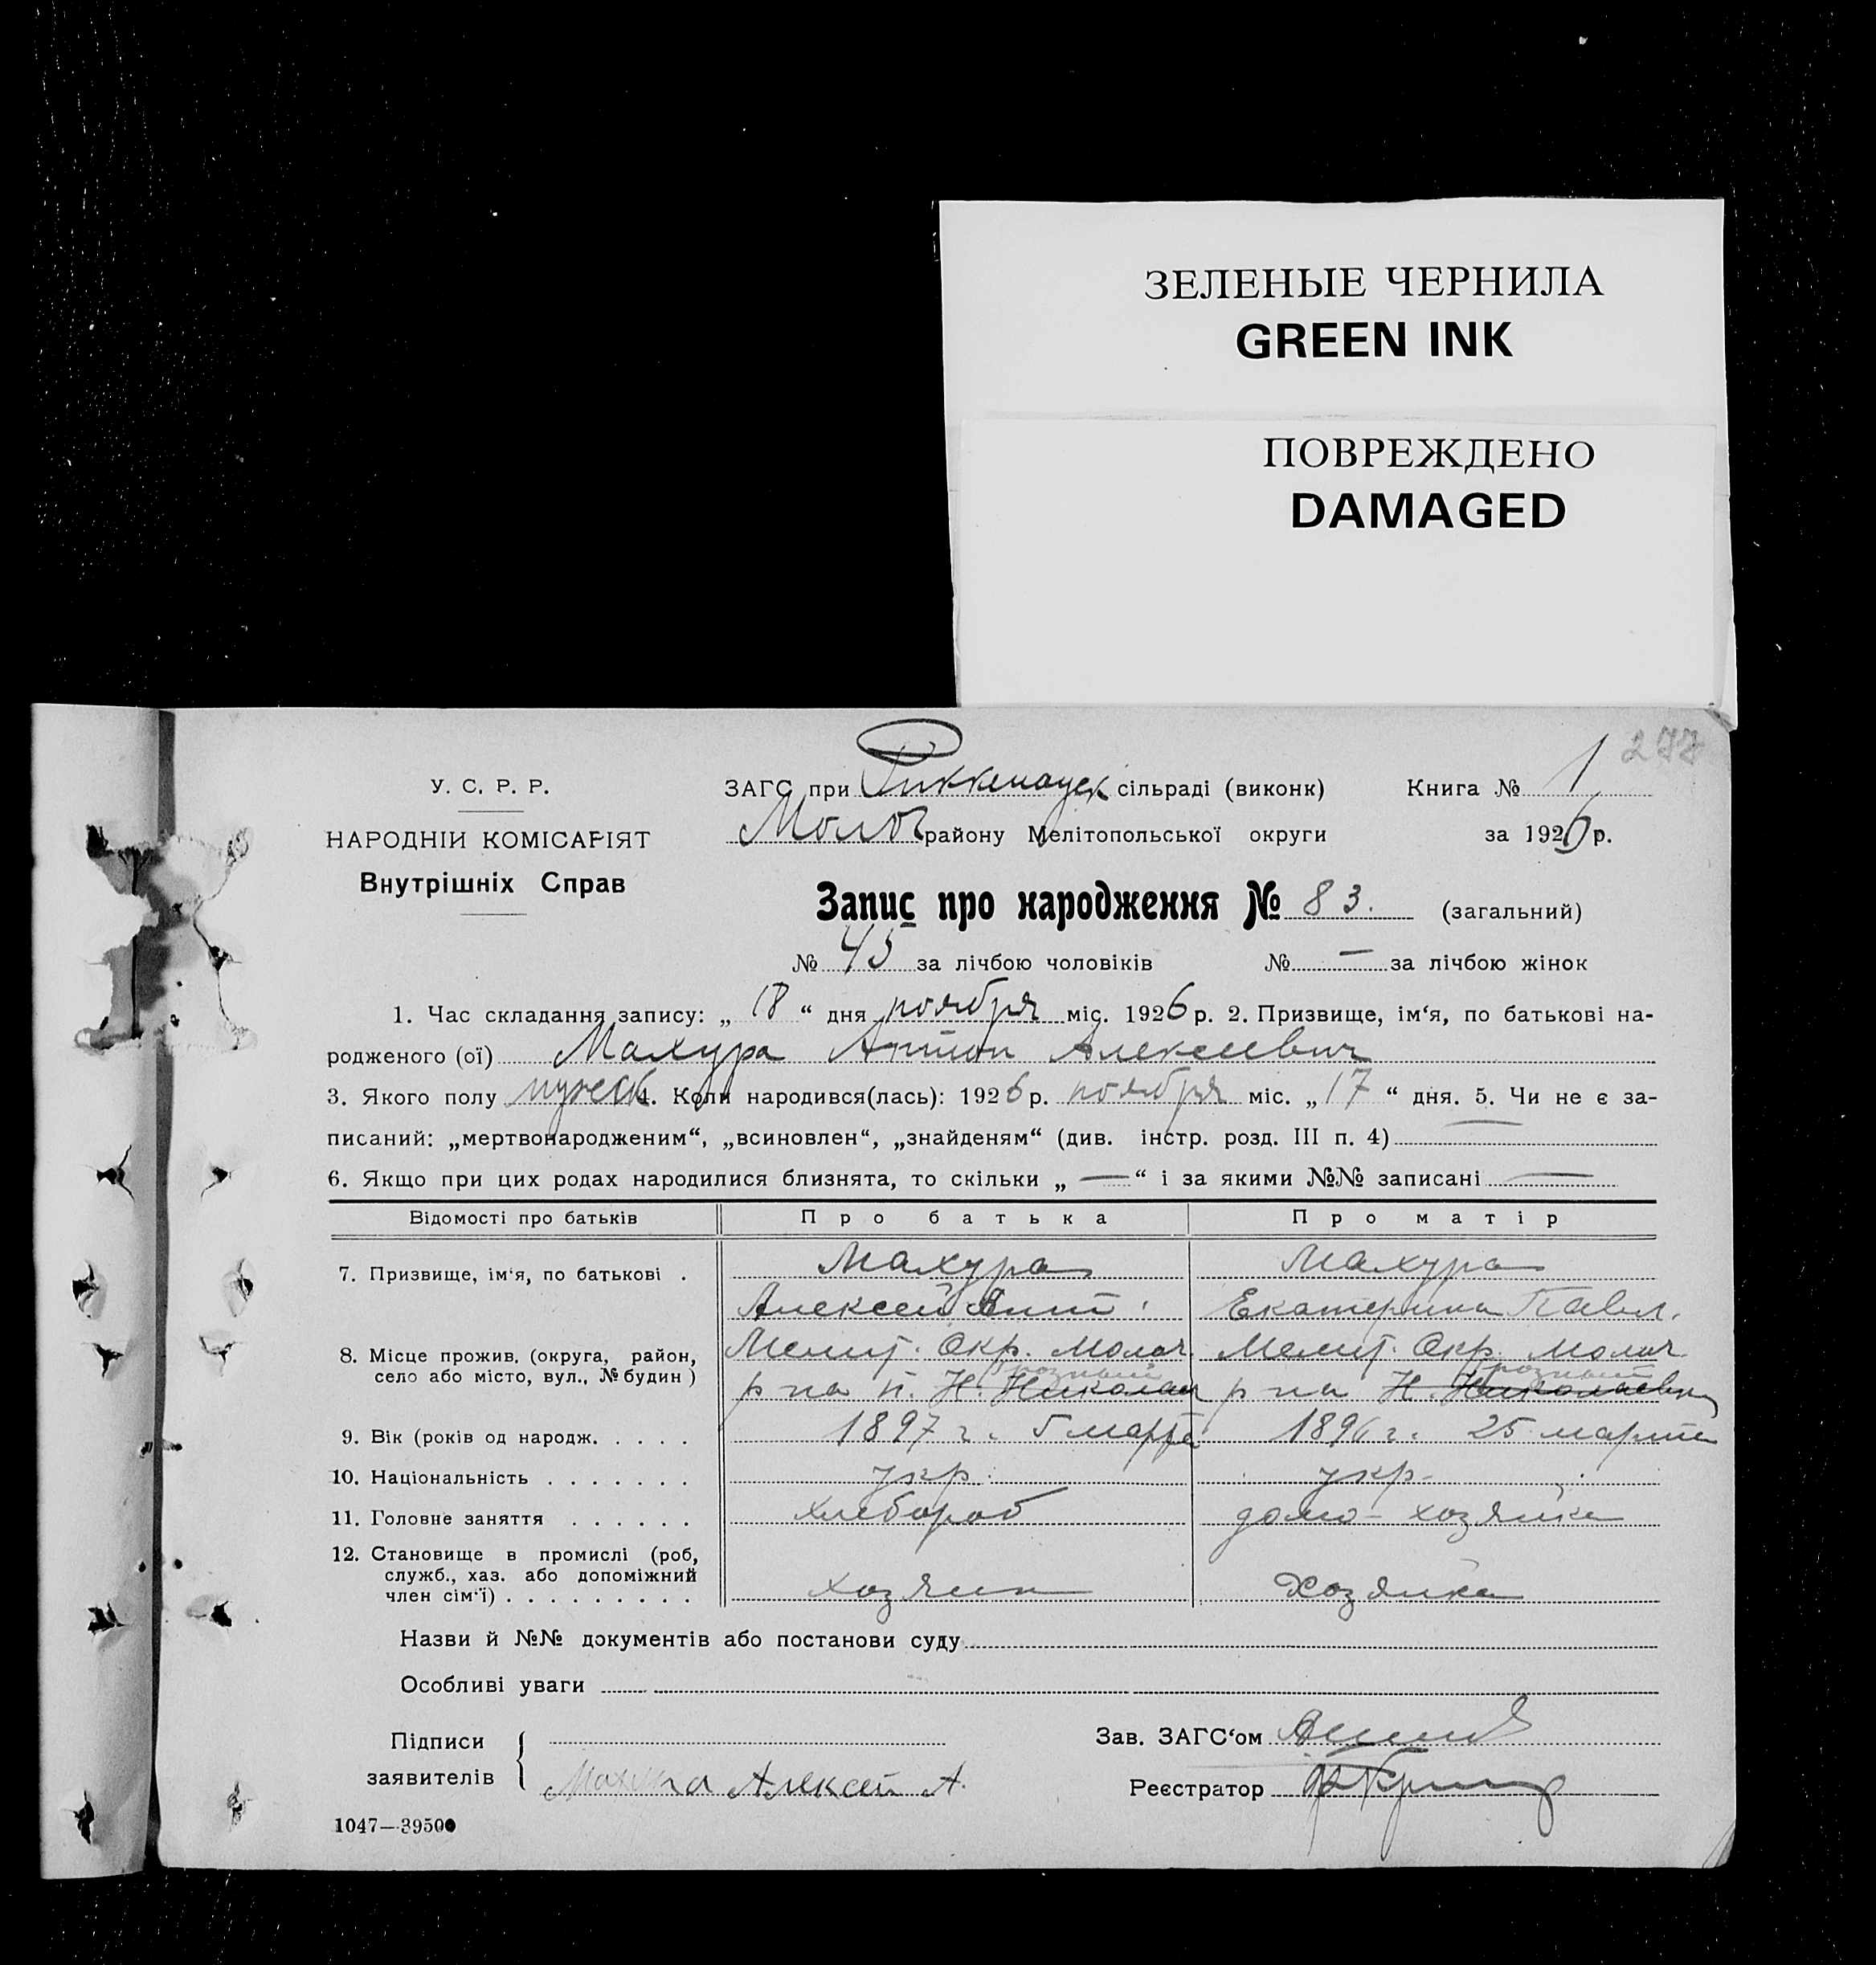 ЗЕЛЕНЫЕ ЧЕРНИЛА
GREEN INK
ПОВРЕЖДЕНО
DAMAGED
277
У. С. Р. Р.
НАРОДНІЙ КОМІСАРІЯТ
Внутрішніх Справ
ЗАГС при Риккенауск сільраді (виконк) Книга № 1
Молоч району Мелітопольської округи за 1926 р.
Запис про народження № 83. (загальний)
№ 45 за лічбою чоловіків № — за лічбою жінок
1. Час складання запису: „ 18 “ дня ноября міс. 1926 р. 2. Призвище, ім‘я, по батькові на-
родженого (ої) Махура Антон Алексеевич
3. Якого полу мужск 4. Коли народився(лась): 1926 р. ноября міс. „ 17 “ дня. 5. Чи не є за-
писаний: „мертвонародженим“, „всиновлен“, „знайденям“ (див. інстр. розд. III п. 4) —
6. Якщо при цих родах народилися близнята, то скільки „ — “ і за якими №№ записані —
Відомості про батьків Про батька Про матір
7. Призвище, ім‘я, по батькові . Махура Махура
Алексей Ант. Екатерина Павл.
8. Місце прожив. (округа, район, Мелит. Окр. Молоч. Мелит. Окр. Молоч
село або місто, вул., № будин) р на п. Н. Николаев Грозный р на Н. Николаевка Грозный
9. Вік (років од народж. . . . . 1897 г. 5 марта 1896 г. 25 марта
10. Національність . . . . . . . укр. укр.
11. Головне заняття . . . . . . хлебороб домо-хозяйка
12. Становище в промислі (роб,
служб., хаз. або допоміжний
член сім‘ї) . . . . . . . . . хозяин Хозяйка
Назви й №№ документів або постанови суду
Особливі уваги
Підписи Зав. ЗАГС‘ом
заявителів Махура Алексей А. Реєстратор
1047—39500